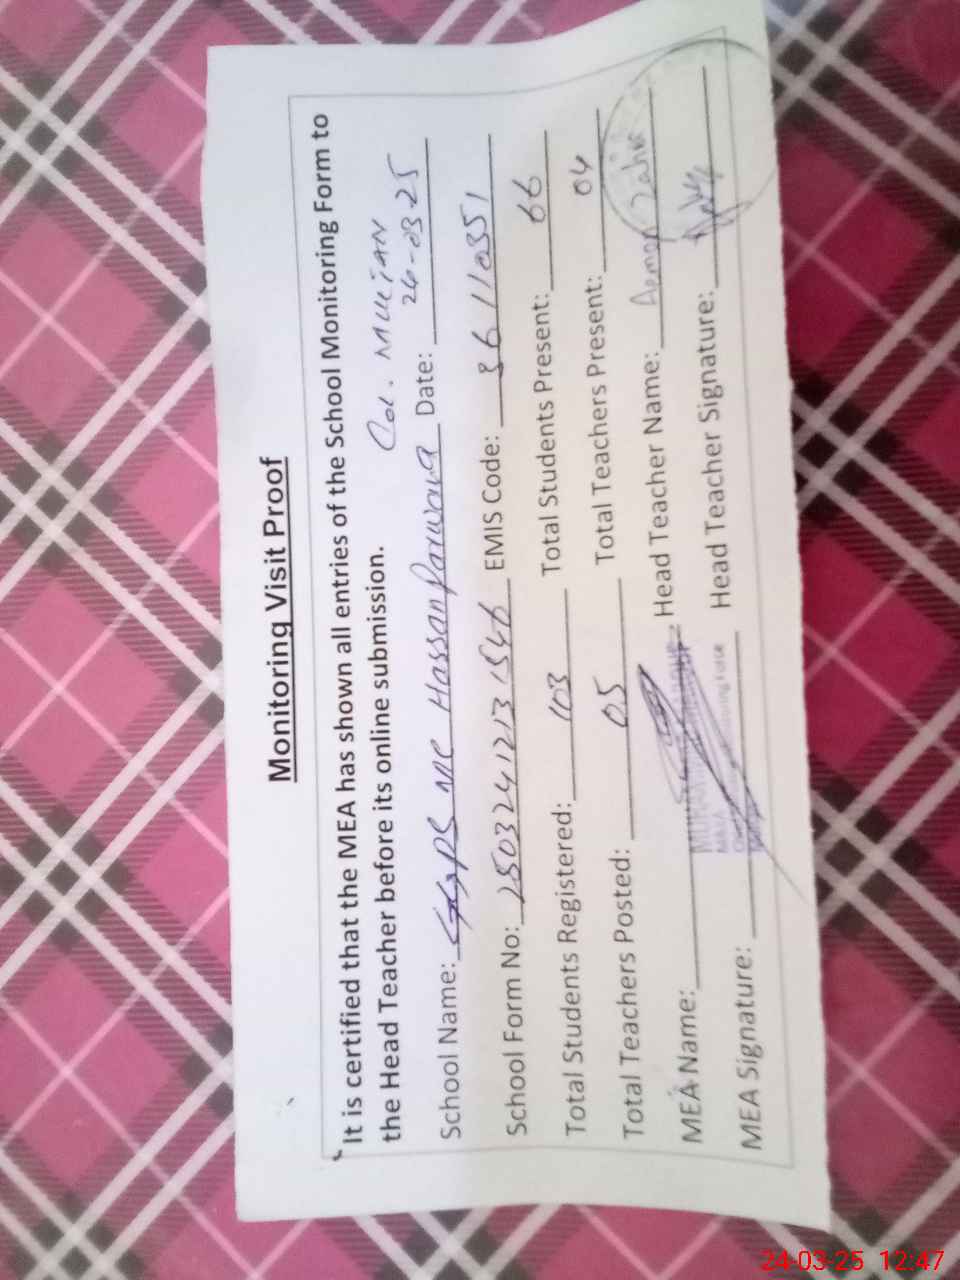 Monitoring Visit Proof
It is certified that the MEA has shown all entries of the School Monitoring Form to
the Head Teacher before its online submission. Col. Multan
School Name: GGPS MC Hassan Parwana Date: 24-03-25
School Form No: 250324121731546 EMIS Code: 36110351
Total Students Registered: 103 Total Students Present: 66
Total Teachers Posted: 05 Total Teachers Present: 04
MEA Name: Head Teacher Name: Zahra
MEA Signature: Head Teacher Signature:
24-03-25 12:47